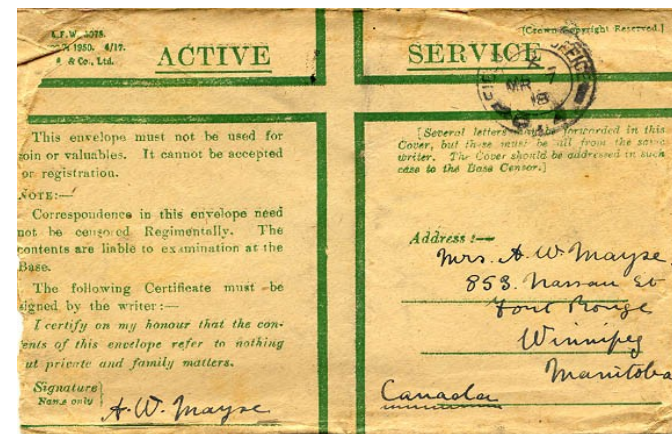 A.F.W. 3078.
1950. 4/17.
& Co., Ltd.
ACTIVE SERVICE
[Crown Copyright Reserved.]
OFFICE
7
MR
18
This envelope must not be used for
coin or valuables. It cannot be accepted
for registration.
NOTE:—
Correspondence in this envelope need
not be censored Regimentally. The
contents are liable to examination at the
Base.
The following Certificate must be
signed by the writer:—
I certify on my honour that the con-
tents of this envelope refer to nothing
but private and family matters.
Signature
Name only
A. W. Mayse
[Several letters may be forwarded in this
Cover, but these must be all from the same
writer. The Cover should be addressed in such
case to the Base Censor.]
Address:—
Mrs. A. W. Mayse,
858. Nassau St
Fort Rouge
Winnipeg
Manitoba
Canada